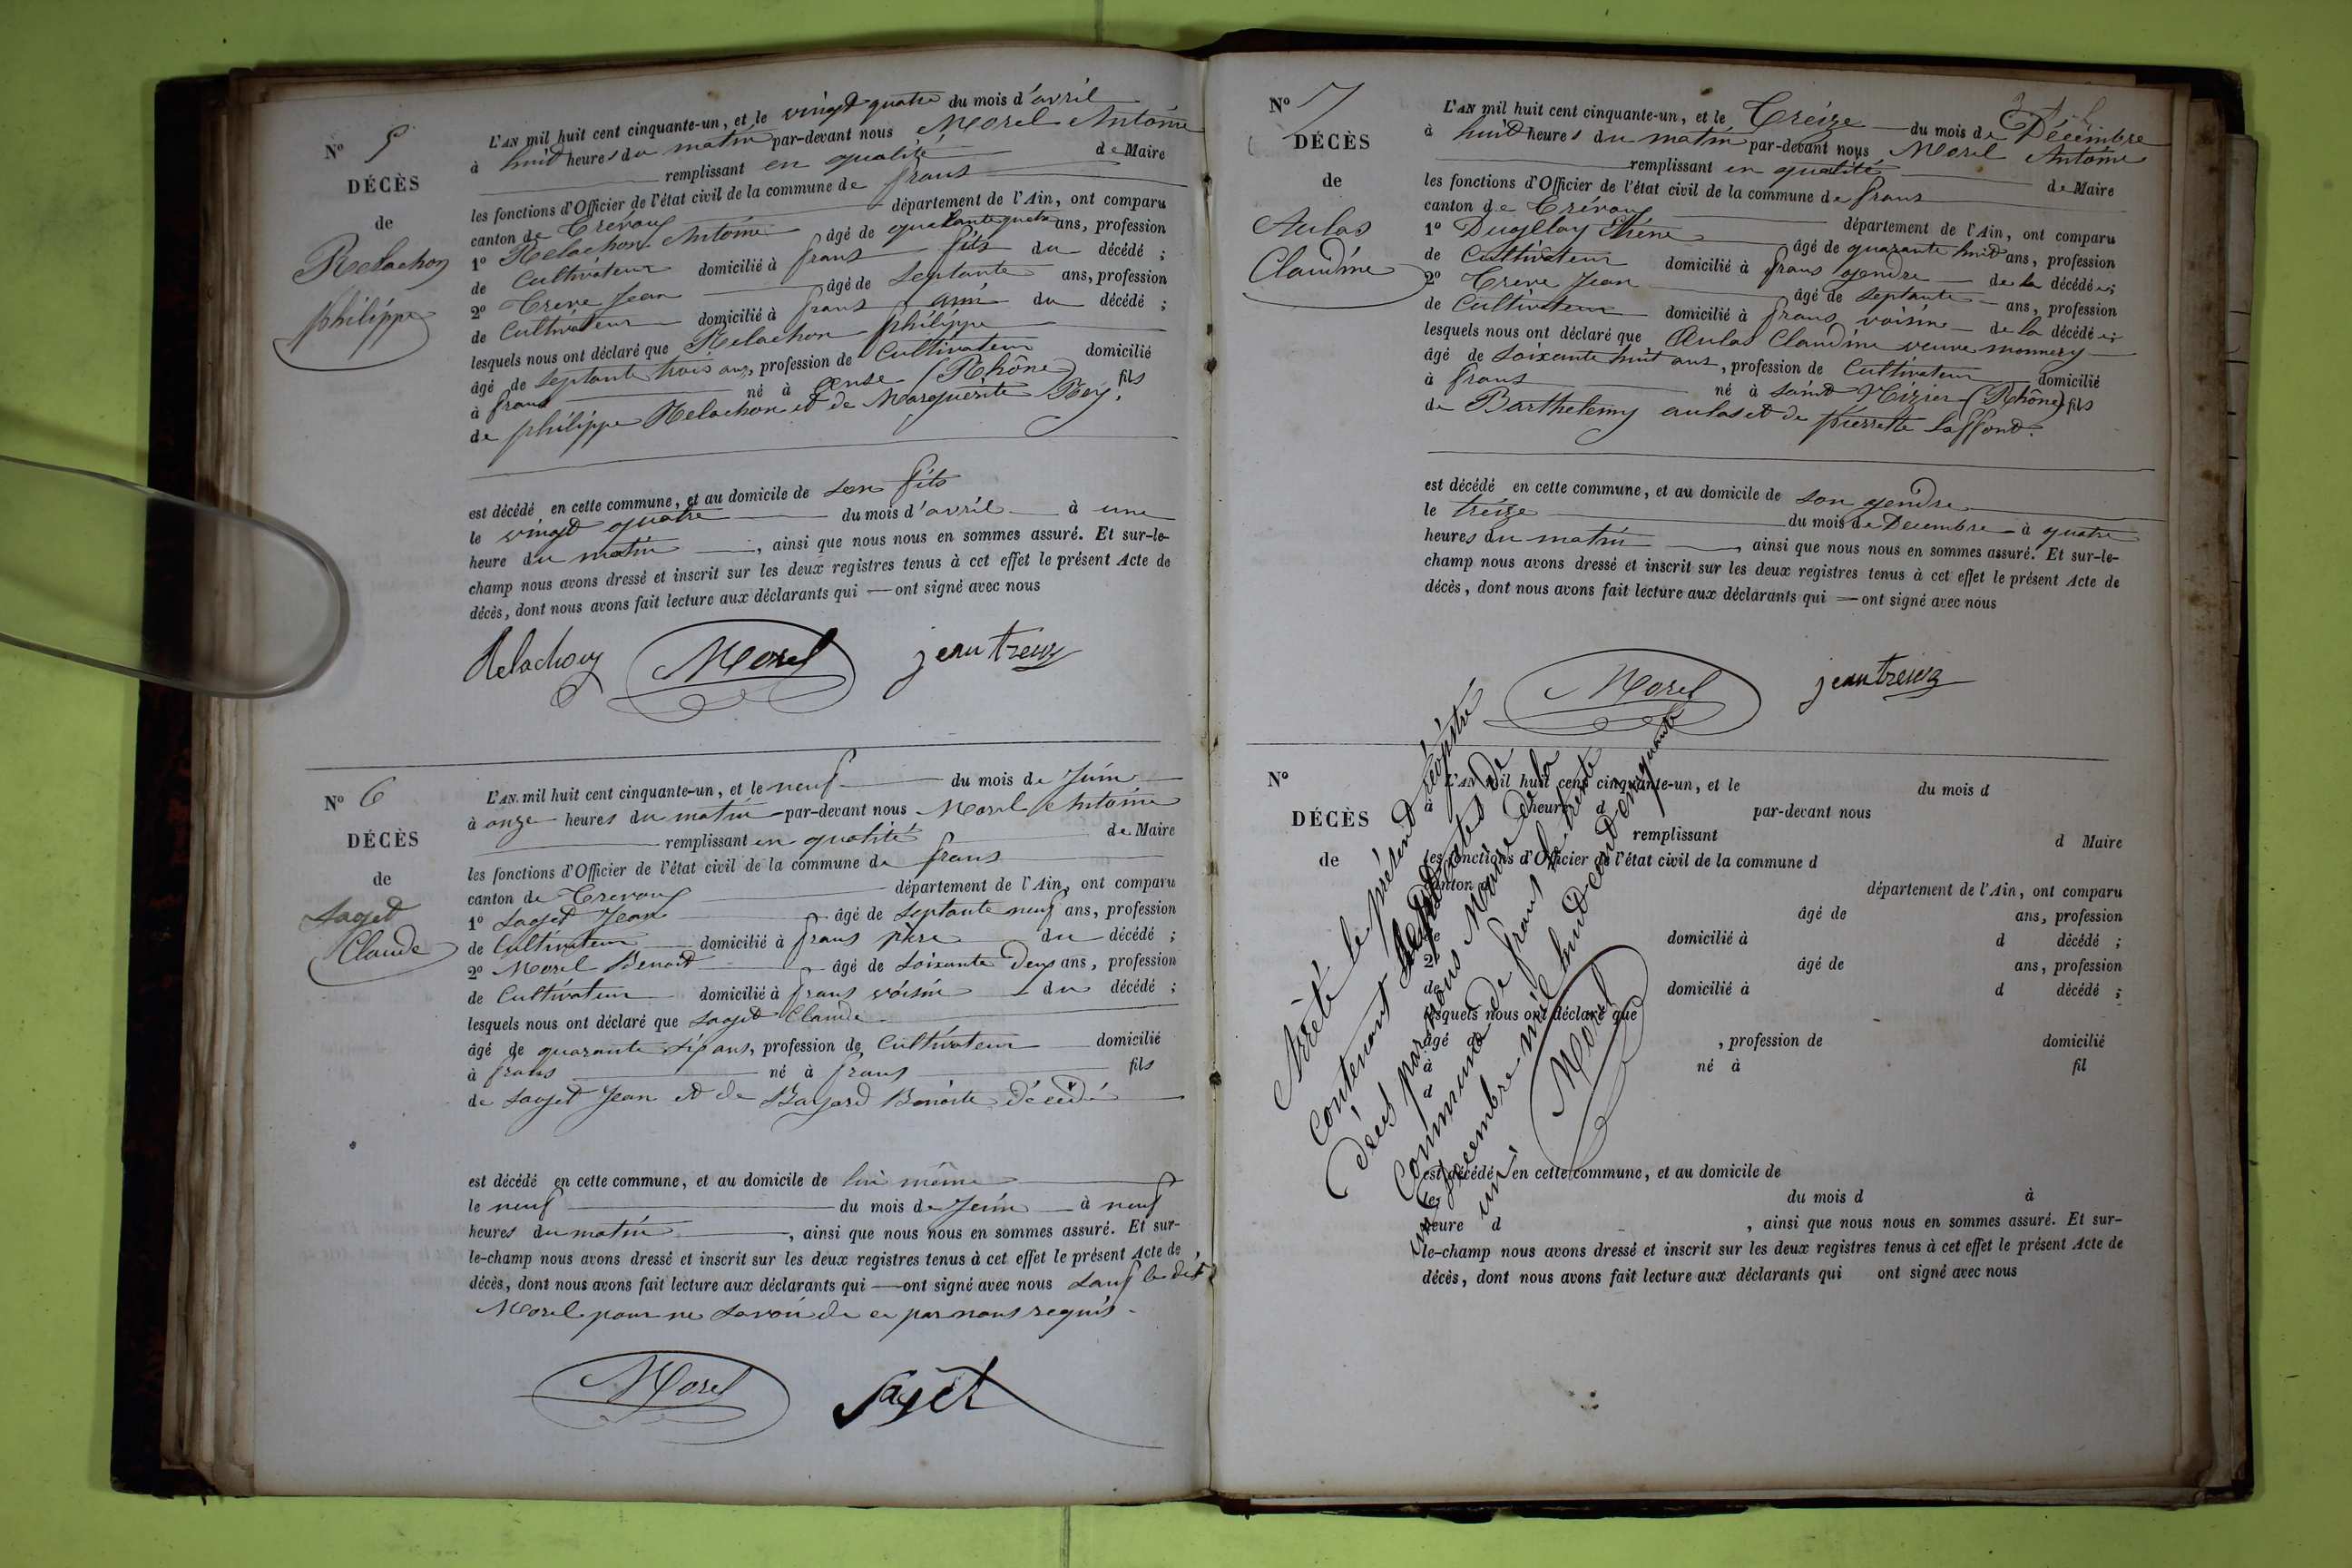 N° 5
DÉCÈS
de
Relachon
philippe
L'AN mil huit cent cinquante-un, et le vingt quatre du mois d'avril
à huit heures du matin par-devant nous Morel Antoine
remplissant en qualité de Maire
les fonctions d'Officier de l'état civil de la commune de frans
canton de Trévoux département de l'Ain, ont comparu
1° Relachon Antoine âgé de quarante quatre ans, profession
de Cultivateur domicilié à frans fils du décédé ;
2° Creve Jean âgé de septante ans, profession
de Cultivateur domicilié à frans ami du décédé ;
lesquels nous ont déclaré que Relachon philippe
âgé de septante trois ans, profession de Cultivateur domicilié
à frans né à (Rhône) fils
de philippe Relachon et de Marguerite Rey.
est décédé en cette commune, et au domicile de son fils
le vingt quatre du mois d'avril à une
heure du matin, ainsi que nous nous en sommes assuré. Et sur-le-
champ nous avons dressé et inscrit sur les deux registres tenus à cet effet le présent Acte de
décès, dont nous avons fait lecture aux déclarants qui — ont signé avec nous
Relachon Morel jean treve
N° 6
DÉCÈS
de
Saget
Claude
L'AN mil huit cent cinquante-un, et le neuf du mois de Juin
à onze heures du matin par-devant nous Morel Antoine
remplissant en qualité de Maire
les fonctions d'Officier de l'état civil de la commune de frans
canton de Trevoux département de l'Ain, ont comparu
1° Saget Jean âgé de septante neuf ans, profession
de Cultivateur domicilié à frans père du décédé ;
2° Morel Benoit âgé de soixante deux ans, profession
de Cultivateur domicilié à frans voisin du décédé ;
lesquels nous ont déclaré que Saget Claude
âgé de quarante six ans, profession de Cultivateur domicilié
à frans né à frans fils
de Saget Jean et de Bayard Benoite décédé
est décédé en cette commune, et au domicile de lui même
le neuf du mois de Juin à neuf
heures du matin, ainsi que nous nous en sommes assuré. Et sur-
le-champ nous avons dressé et inscrit sur les deux registres tenus à cet effet le présent Acte de
décès, dont nous avons fait lecture aux déclarants qui — ont signé avec nous sauf le dit
Morel pour ne savoir de ce par nous requis.
Morel Saget
N° 7
DÉCÈS
de
Aulas
Claudine
L'AN mil huit cent cinquante-un, et le Treize du mois de Décembre
à huit heures du matin par-devant nous Morel Antoine
remplissant en qualité de Maire
les fonctions d'Officier de l'état civil de la commune de frans
canton de Trévoux département de l'Ain, ont comparu
1° âgé de quarante huit ans, profession
de Cultivateur domicilié à frans gendre de la décédée ;
2° Creve Jean âgé de septante ans, profession
de Cultivateur domicilié à frans voisin de la décédée ;
lesquels nous ont déclaré que Aulas Claudine veuve monnery
âgé de soixante huit ans, profession de Cultivateur domicilié
à frans né à saint Nizier (Rhône) fils
de Barthelemy aulas et de pierrette laffond.
est décédé en cette commune, et au domicile de son gendre
le treize du mois de Decembre à quatre
heures du matin, ainsi que nous nous en sommes assuré. Et sur-le-
champ nous avons dressé et inscrit sur les deux registres tenus à cet effet le présent Acte de
décès, dont nous avons fait lecture aux déclarants qui — ont signé avec nous
Morel jean treve
N°
DÉCÈS
de
L'AN mil huit cent cinquante-un, et le du mois d
à heure d par-devant nous
remplissant d Maire
les fonctions d'Officier de l'état civil de la commune d
canton département de l'Ain, ont comparu
âgé de ans, profession
de domicilié à d décédé ;
2° âgé de ans, profession
de domicilié à d décédé ;
lesquels nous ont déclaré que
âgé , profession de domicilié
à né à fil
d
est décédé en cette commune, et au domicile de
le du mois d à
heure d , ainsi que nous nous en sommes assuré. Et sur-
le-champ nous avons dressé et inscrit sur les deux registres tenus à cet effet le présent Acte de
décès, dont nous avons fait lecture aux déclarants qui ont signé avec nous
Arrêté le présent régistre
contenant sept actes de
décès par nous Maire de la
Commune de frans le trente
un Decembre mil huit cent cinquante
un
Morel